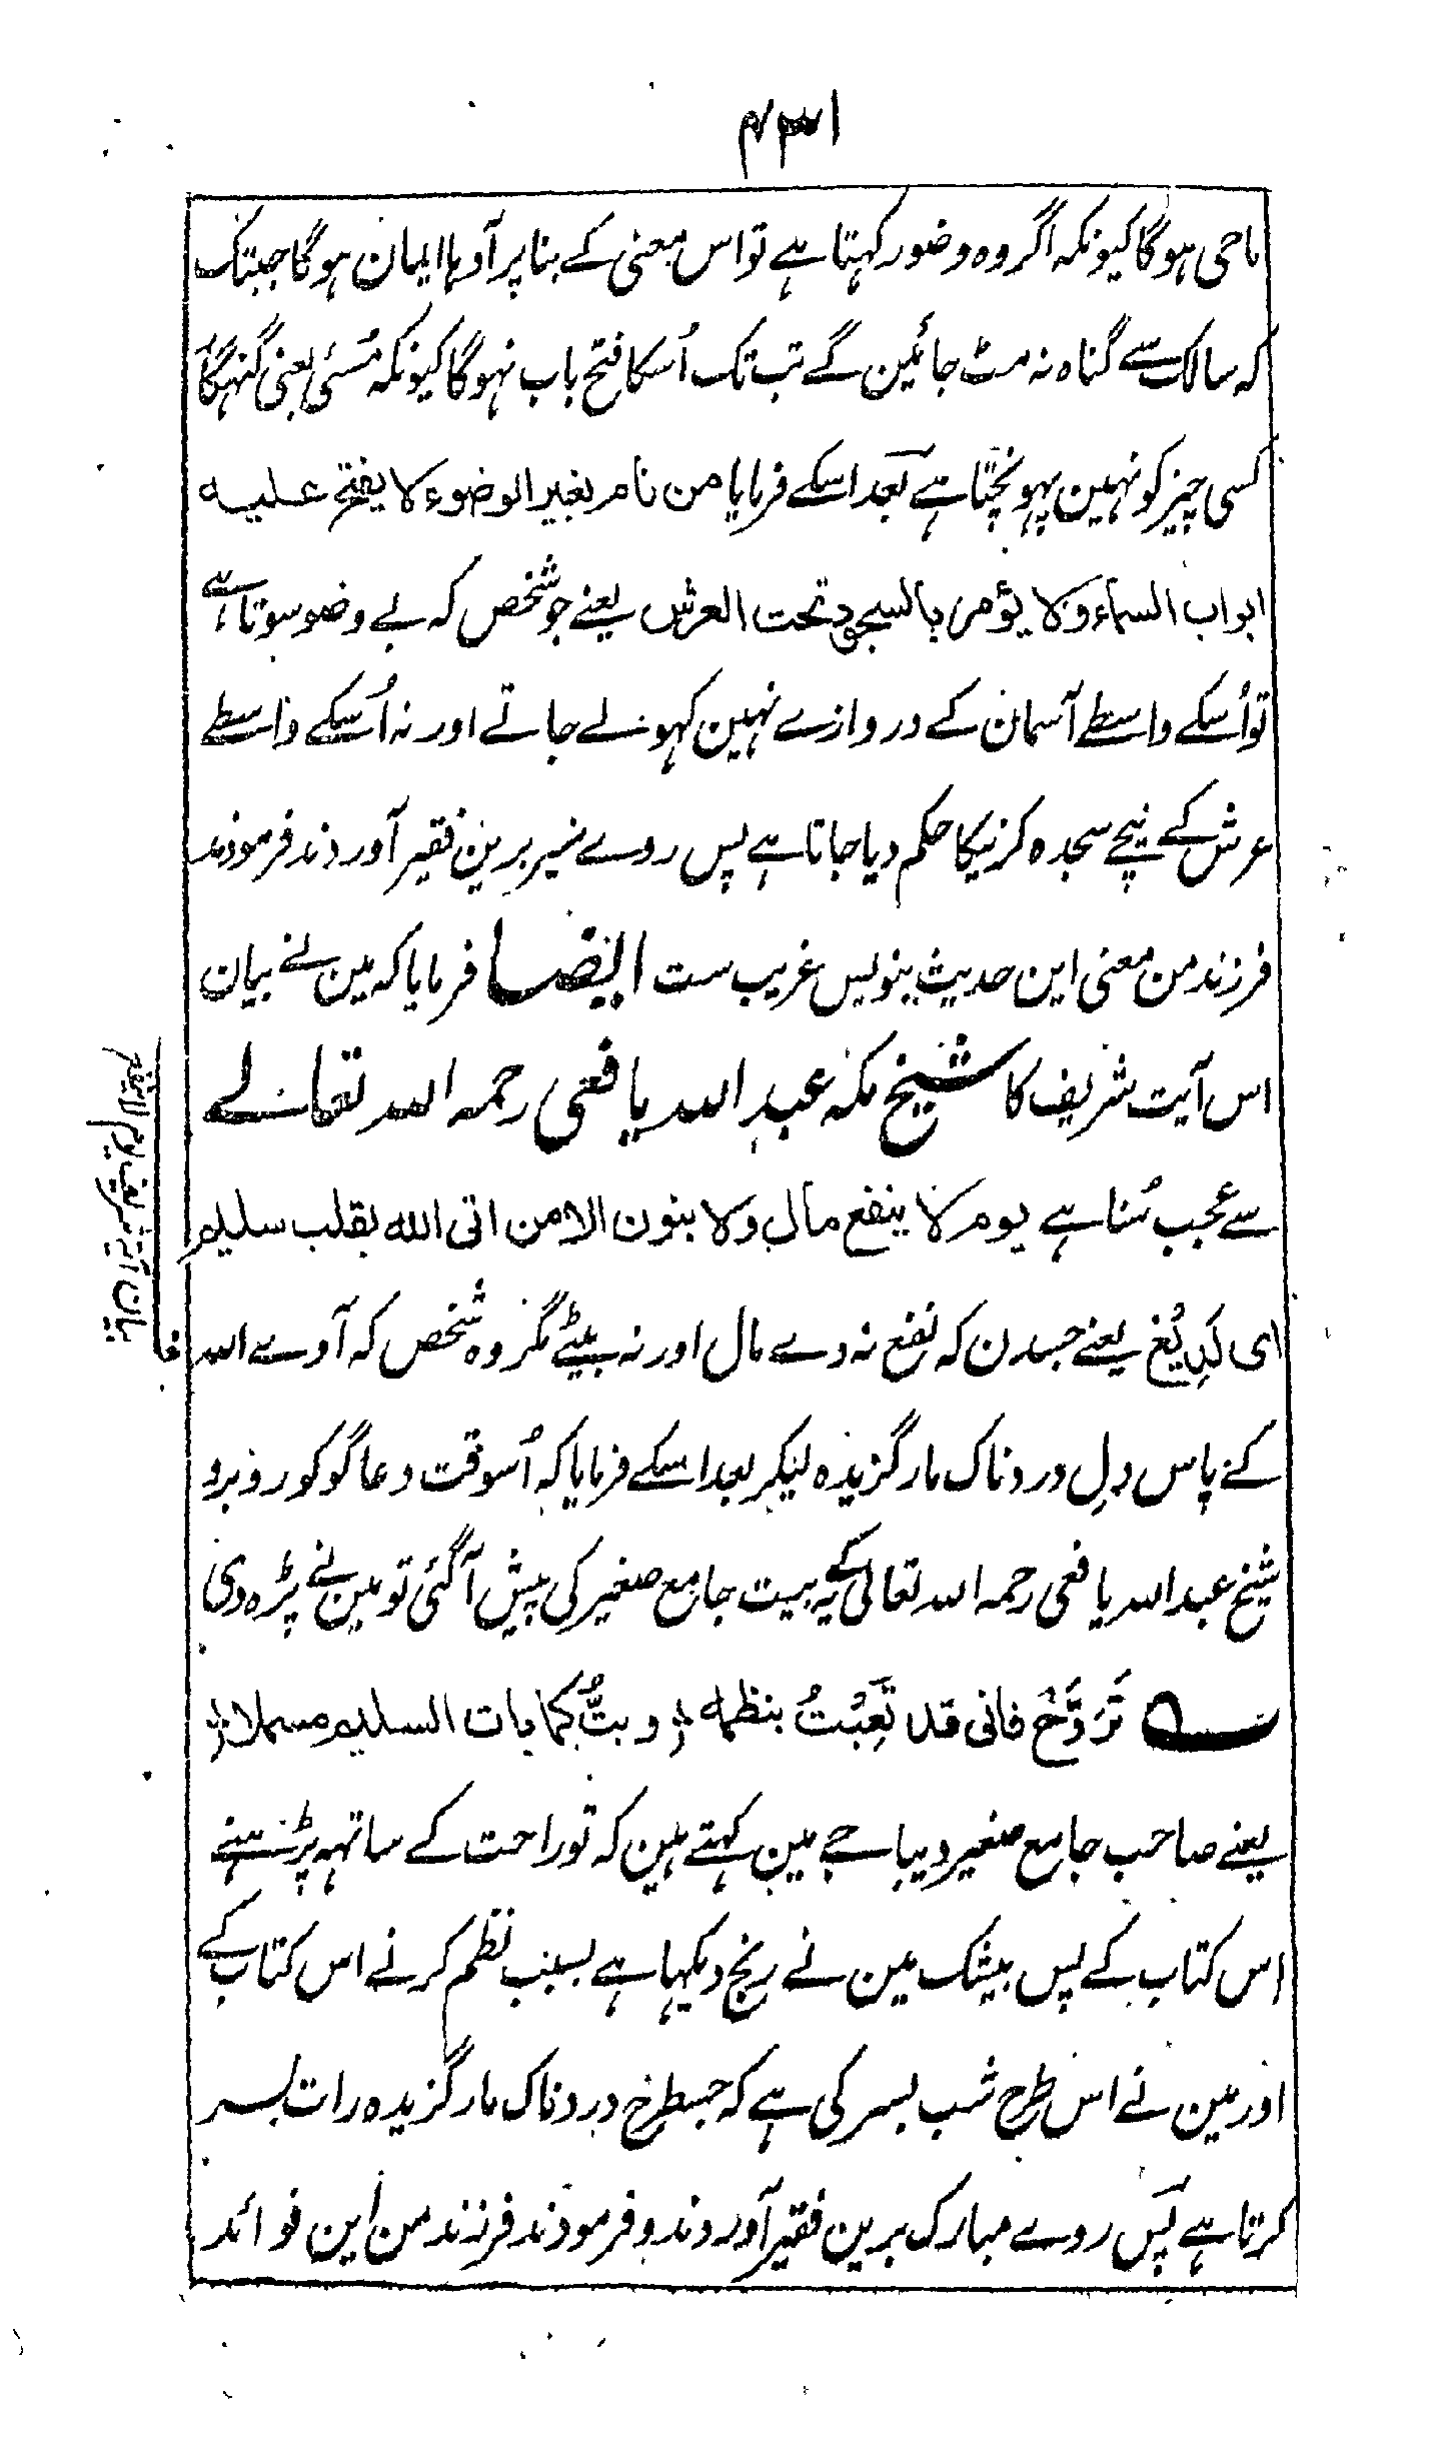 ۴۳۱
ماحی ہوگا کیونکہ اگر وہ وضور کہتا ہے تو اس معنی کے بنا پر آدہا ایمان ہوگا جبتک
کہ سالک سے گناہ نہ مٹ جائین گے تب تک اُسکا فتح باب نہوگا کیونکہ مُسئی یعنی گنہگار
کسی چیز کو نہین پہونچتا ہے بعد اسکے فرمایا من نام بغیر الوضوء لا یفتح علیہ
ابواب السماء ولا یؤمر بالسجود تحت العرش یعنے جو شخص کہ بے وضو سوتا ہے
تو اُسکے واسطے آسمان کے دروازے نہین کہولے جاتے اور نہ اُسکے واسطے
عرش کے نیچے سجدہ کرنیکا حکم دیا جاتا ہے پس روے منیر برین فقیر آوردند فرمودند
فرزند من معنی این حدیث بنویس غریب ست ایضا فرمایا کہ مین نے بیان
اس آیت شریف کا شیخ مکہ عبد اللہ یافعی رحمہ اللہ تعالے
سے عجب سُنا ہے یوم لا ینفع مال ولا بنون الا من اتی اللہ بقلب سلیم
ای لَدِیْغ یعنے جسدن کہ نفع نہ دے مال اور نہ بیٹے مگر وہ شخص کہ آوے اللہ
بیان آیۃ شریف یوم لا ینفع
کے پاس دلِ دردناک مار گزیدہ لیکر بعد اسکے فرمایا کہ اُسوقت دعاگو کو روبرو
شیخ عبد اللہ یافعی رحمہ اللہ تعالی کے یہ بیت جامع صغیر کی پیش آگئی تو مین نے پڑہ دی
تَرَوَّحْ فانی قد تَعِبْتُ بنظمہ وبتُّ کما بات السلیم مسہلا
یعنے صاحب جامع صغیر دیباجے مین کہتے ہین کہ تو راحت کے ساتہہ پڑہنے
اس کتاب کے پس بیشک مین نے رنج دیکہا ہے بسبب نظم کرنے اس کتاب کے
اور مین نے اس طرح شب بسر کی ہے کہ جسطرح دردناک مار گزیدہ رات بسر
کرتا ہے پس روے مبارک برین فقیر آوردند و فرمودند فرزند من این فوائد